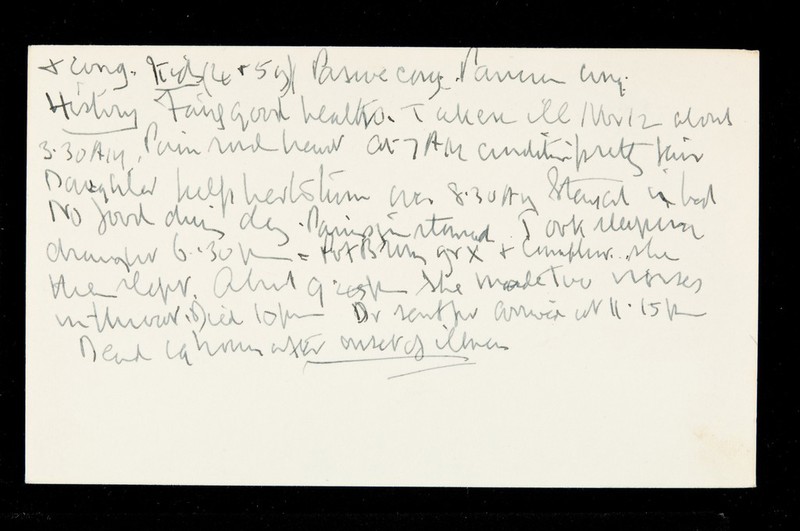 + cong. Kids (4 + 5 oz) Passive cong. Pancreas cong.
History Fairly good health. Taken ill Nov 12 about
3.30 AM. Pain round heart at 7 AM condition pretty fair
Daughter help her to turn over 8.30 AM Stayed in bed
No food during day. Pains in stomach. Took sleeping
draught 6.30 pm = Pot Brom gr X + Camphor. she
then slept. About 9 pm she made two noises
in throat. Died 10 pm Dr sent for arrived at 11.15 pm
Dead 19 hours after onset of illness